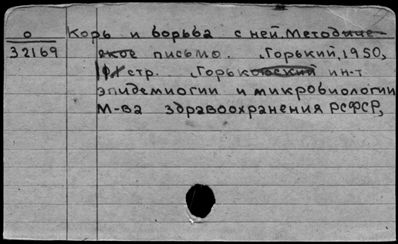 О Корь и борьба с ней. Методиче-
32169 ское письмо. Горький, 1950,
стр. Горьковский ин-т
эпидемиогии и микробиологии
М-ва здравоохранения РСФСР,